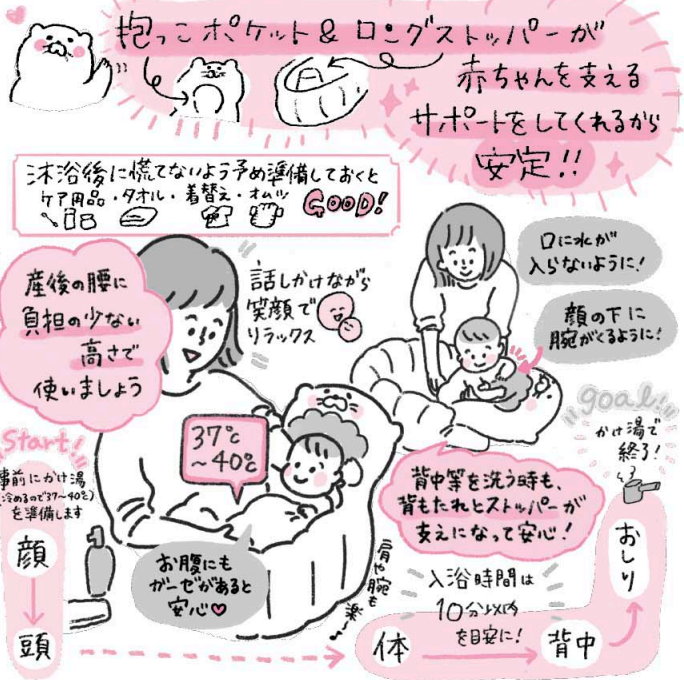 抱っこポケット&ロングストッパーが
赤ちゃんを支える
サポートをしてくれるから
安定!!
沐浴後に慌てないよう予め準備しておくと
ケア用品・タオル・着替え・オムツ
GOOD!
産後の腰に
負担の少ない
高さで
使いましょう
話しかけながら
笑顔で
リラックス
口に水が
入らないように!
顔の下に
腕がくるように!
37℃
~40℃
Start!
事前にかけ湯
(冷めるので37~40℃)
を準備します
顔
頭
お腹にも
ガーゼがあると
安心♡
肩や腕も
楽~♪
背中等を洗う時も、
背もたれとストッパーが
支えになって安心!
入浴時間は
10分以内
を目安に!
体
背中
おしり
goal!
かけ湯で
終了!